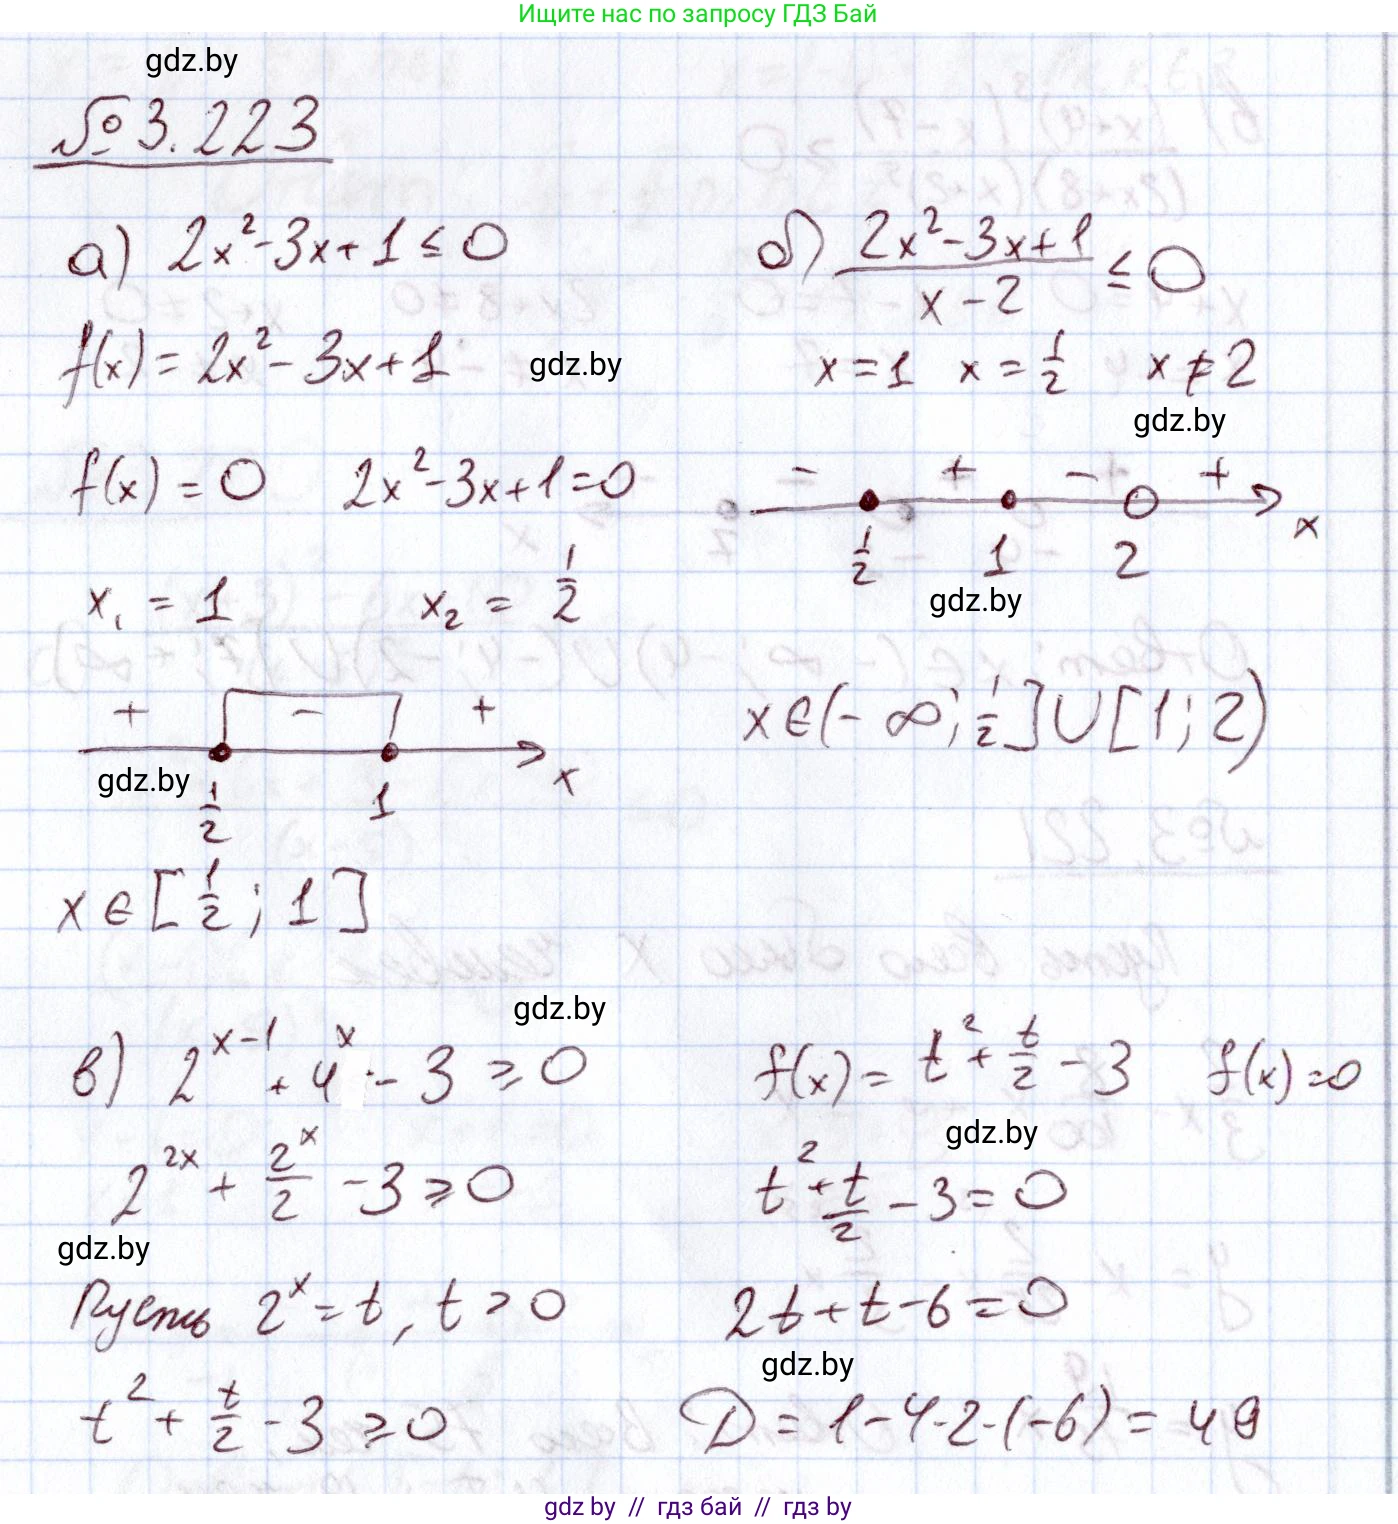 Ищите нас по запросу ГДЗ Бай
gdz.by
№ 3.223
а) 2x² - 3x + 1 ≤ 0
f(x) = 2x² - 3x + 1
gdz.by
f(x) = 0    2x² - 3x + 1 = 0
x₁ = 1    x₂ = 1/2
+ - +
gdz.by
1/2 1 x
x ∈ [1/2; 1]
б) (2x² - 3x + 1)/(x - 2) ≤ 0
x = 1  x = 1/2  x ≠ 2
gdz.by
- + - +
1/2 1 2 x
gdz.by
x ∈ (-∞; 1/2] ∪ [1; 2)
gdz.by
в) 2^(x-1) + 4^x - 3 ≥ 0
2^(2x) + 2^x/2 - 3 ≥ 0
gdz.by
Пусть 2^x = t, t > 0
t² + t/2 - 3 ≥ 0
f(x) = t² + t/2 - 3    f(x) = 0
gdz.by
t² + t/2 - 3 = 0
2t + t - 6 = 0
gdz.by
D = 1 - 4·2·(-6) = 49
gdz.by // гдз бай // гдз by